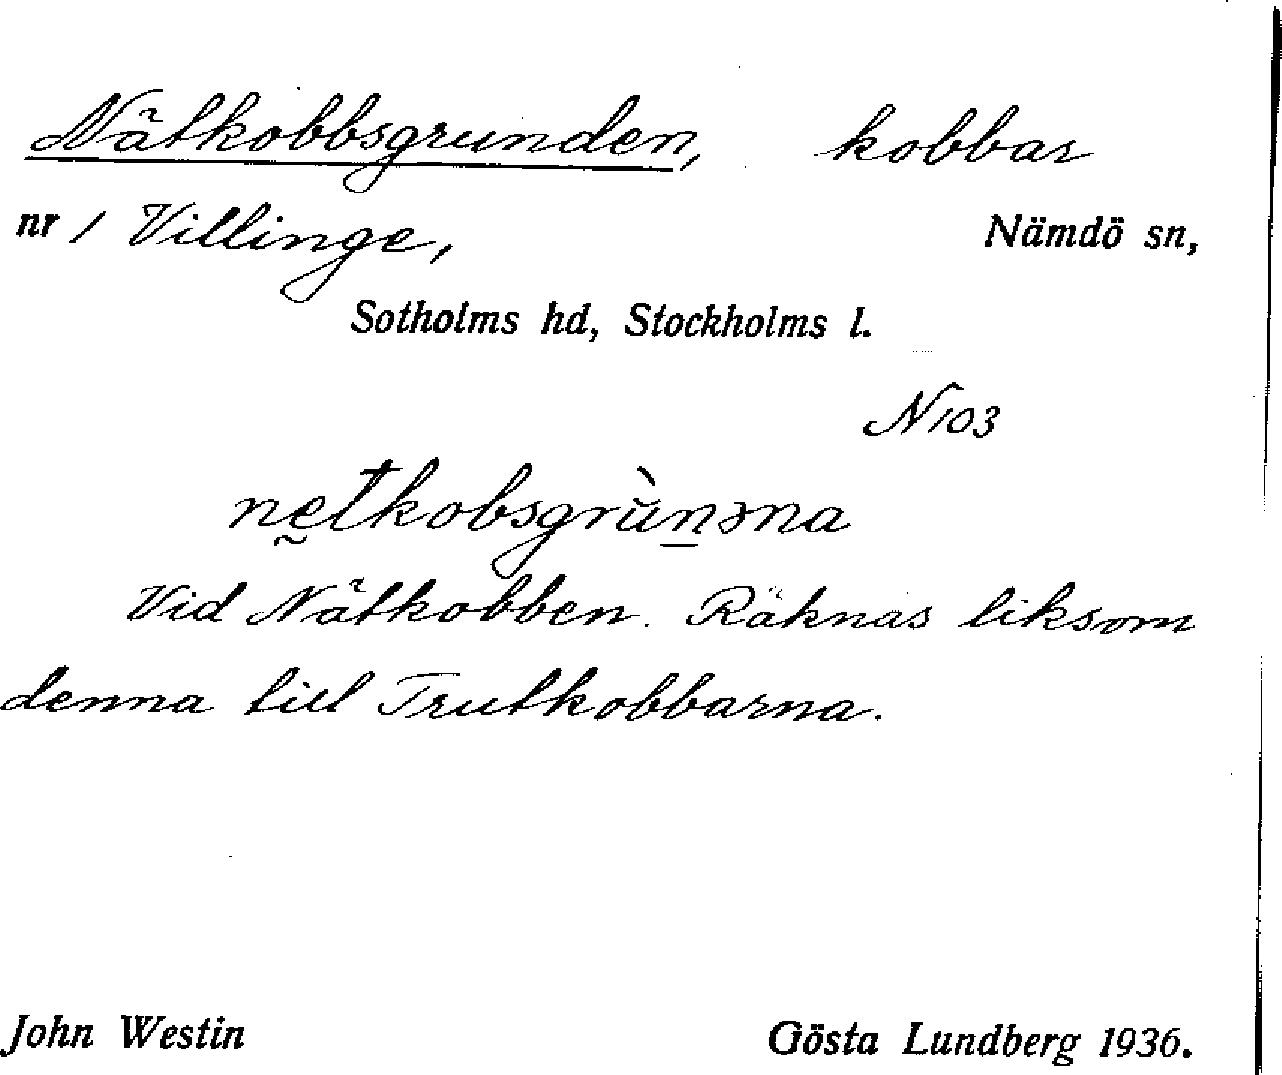 Nätkobbsgrunden, kobbar
nr 1 Villinge, Nämdö sn,
Sotholms hd, Stockholms l.
N103
nętkobsgrùn̲əna
Vid Nätkobben. Räknas liksom
denna till Trutkobbarna.
John Westin Gösta Lundberg 1936.